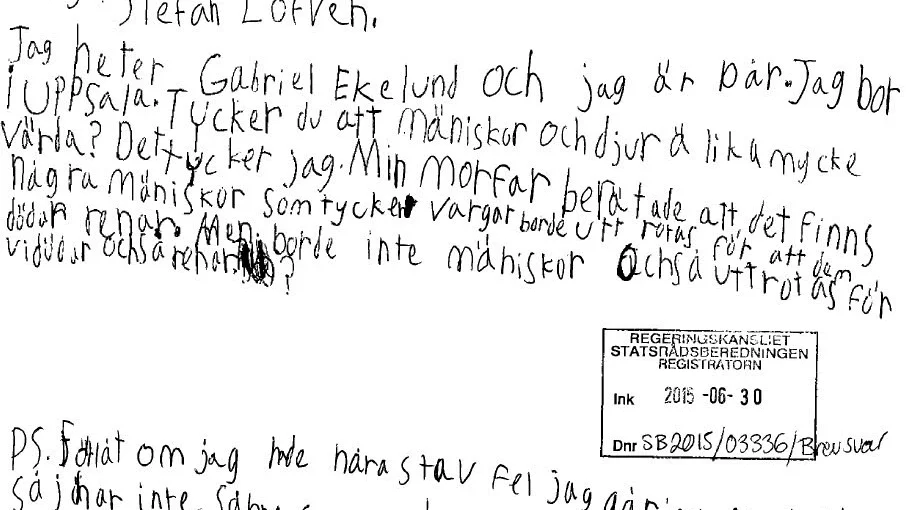 Stefan Löfven.
Jag heter Gabriel Ekelund och jag är Jag bor
i Uppsala. Tycker du att mäniskor och djur ä lika mycke
värda? Det tycker jag. Min morfar berätade att det finns
några mäniskor som tycker vargar borde utt rotas för att dem
dödar renar. Men borde inte mäniskor ochså uttrotas för
vi dödar ochså renar ?
REGERINGSKANSLIET
STATSRÅDSBEREDNINGEN
REGISTRATORN
Ink 2015 -06- 30
Dnr SB2015/03336/Brevsvar
PS. Förlåt om jag hade nåra stav fel jag
så j har inte